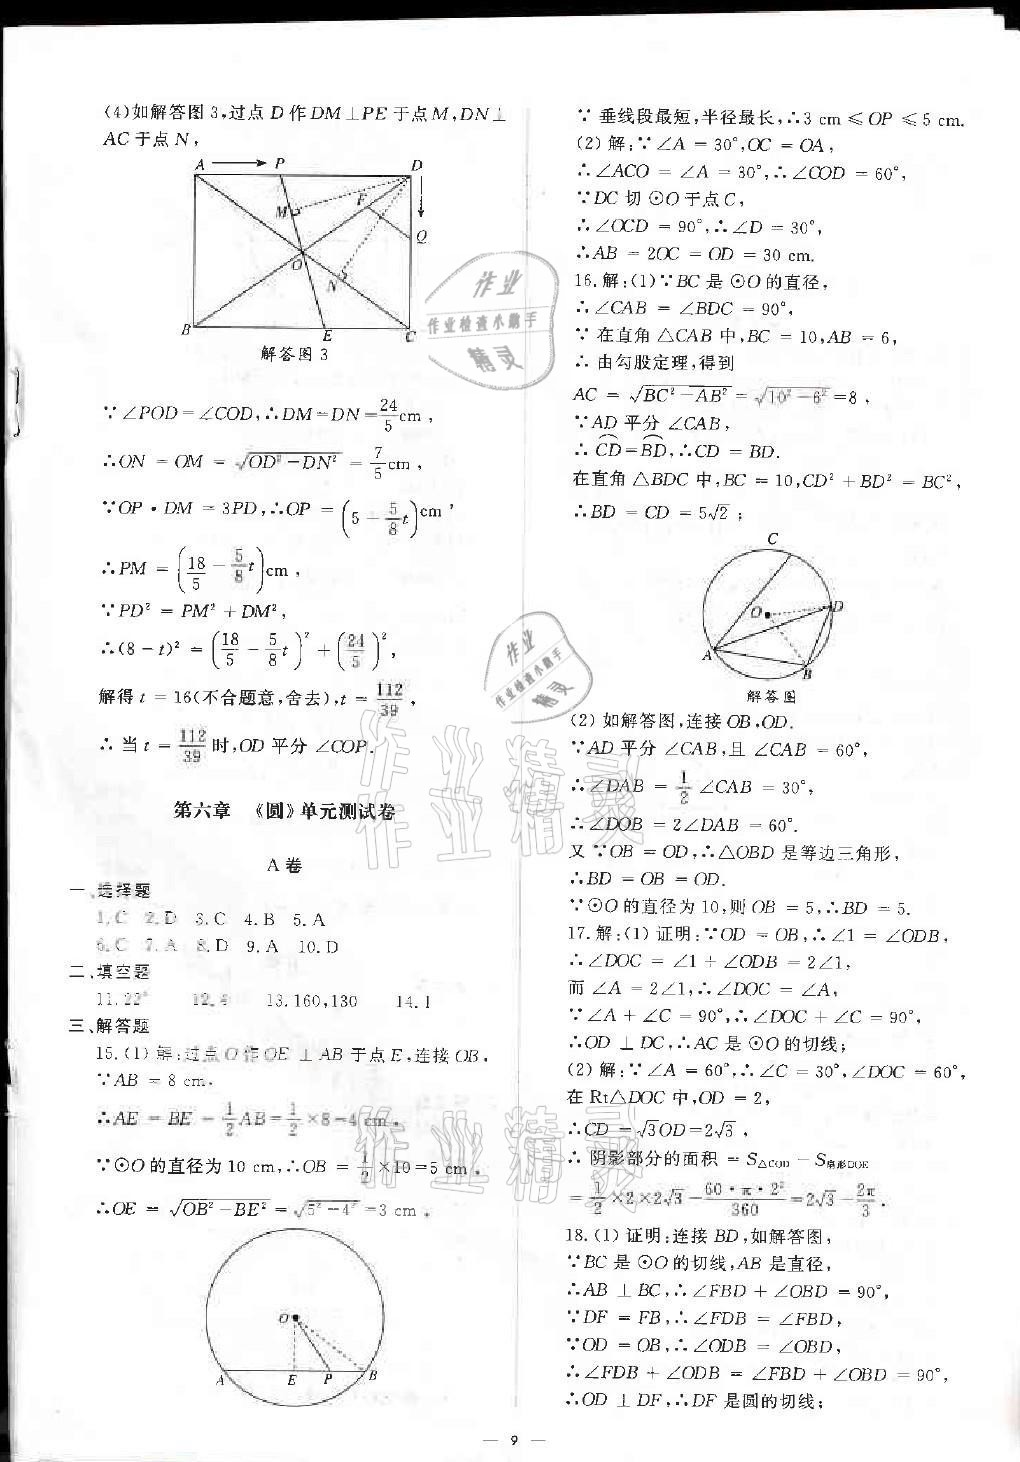 (4)如解答图3,过点D作DM⊥PE于点M,DN⊥
AC于点N,
A P D
M F
Q
O
N S
B E C
解答图3
∵∠POD=∠COD,∴DM=DN=24/5cm,
∴ON=OM=√(OD²-DN²)=7/5cm,
∵OP·DM=3PD,∴OP=(5-5/8t)cm,
∴PM=(18/5-5/8t)cm,
∵PD²=PM²+DM²,
∴(8-t)²=(18/5-5/8t)²+(24/5)²,
解得t=16(不合题意,舍去),t=112/39,
∴当t=112/39时,OD平分∠COP.
第六章 《圆》单元测试卷
A卷
一、选择题
1.C 2.D 3.C 4.B 5.A
6.C 7.A 8.D 9.A 10.D
二、填空题
11.22° 12.4 13.160,130 14.1
三、解答题
15.(1)解:过点O作OE⊥AB于点E,连接OB,
∵AB=8 cm.
∴AE=BE=1/2AB=1/2×8=4 cm.
∵⊙O的直径为10 cm,∴OB=1/2×10=5 cm.
∴OE=√(OB²-BE²)=√(5²-4²)=3 cm.
O
A E P B
∵垂线段最短,半径最长,∴3 cm≤OP≤5 cm.
(2)解:∵∠A=30°,OC=OA,
∴∠ACO=∠A=30°,∴∠COD=60°,
∵DC切⊙O于点C,
∴∠OCD=90°,∴∠D=30°,
∴AB=2OC=OD=30 cm.
16.解:(1)∵BC是⊙O的直径,
∴∠CAB=∠BDC=90°,
∵在直角△CAB中,BC=10,AB=6,
∴由勾股定理,得到
AC=√(BC²-AB²)=√(10²-6²)=8,
∵AD平分∠CAB,
∴CD=BD,∴CD=BD.
在直角△BDC中,BC=10,CD²+BD²=BC²,
∴BD=CD=5√2;
C
O D
A
B
解答图
(2)如解答图,连接OB,OD.
∵AD平分∠CAB,且∠CAB=60°,
∴∠DAB=1/2∠CAB=30°,
∴∠DOB=2∠DAB=60°.
又∵OB=OD,∴△OBD是等边三角形,
∴BD=OB=OD.
∵⊙O的直径为10,则OB=5,∴BD=5.
17.解:(1)证明:∵OD=OB,∴∠1=∠ODB,
∴∠DOC=∠1+∠ODB=2∠1,
而∠A=2∠1,∴∠DOC=∠A,
∵∠A+∠C=90°,∴∠DOC+∠C=90°,
∴OD⊥DC,∴AC是⊙O的切线;
(2)解:∵∠A=60°,∴∠C=30°,∠DOC=60°,
在Rt△DOC中,OD=2,
∴CD=√3OD=2√3,
∴阴影部分的面积=S△COD-S扇形DOE
=1/2×2×2√3-60·π·2²/360=2√3-2π/3.
18.(1)证明:连接BD,如解答图,
∵BC是⊙O的切线,AB是直径,
∴AB⊥BC,∴∠FBD+∠OBD=90°,
∵DF=FB,∴∠FDB=∠FBD,
∵OD=OB,∴∠ODB=∠OBD,
∴∠FDB+∠ODB=∠FBD+∠OBD=90°,
∴OD⊥DF,∴DF是圆的切线;
— 9 —
作业
作业检查小助手
精灵
作业
作业检查小助手
精灵
作业精灵
作业精灵